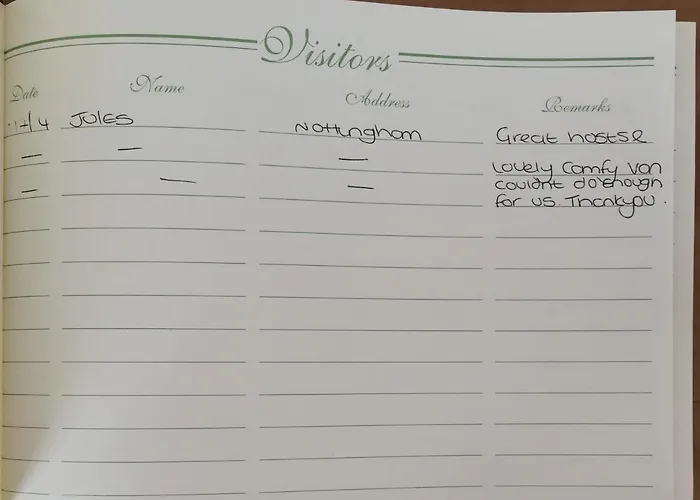 Visitors
Date Name Address Remarks
JULES Nottingham Great hosts &
— — — Lovely Comfy van
— — — couldnt do enough
for us. Thankyou.